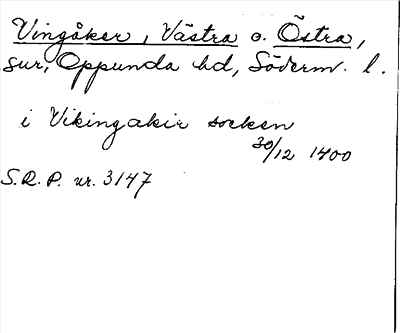 Vingåker, Västra o. Östra,
sur, Oppunda hd, Söderm. l.
i Vikingakir socken
30/12 1400
S.R.P. nr. 3147